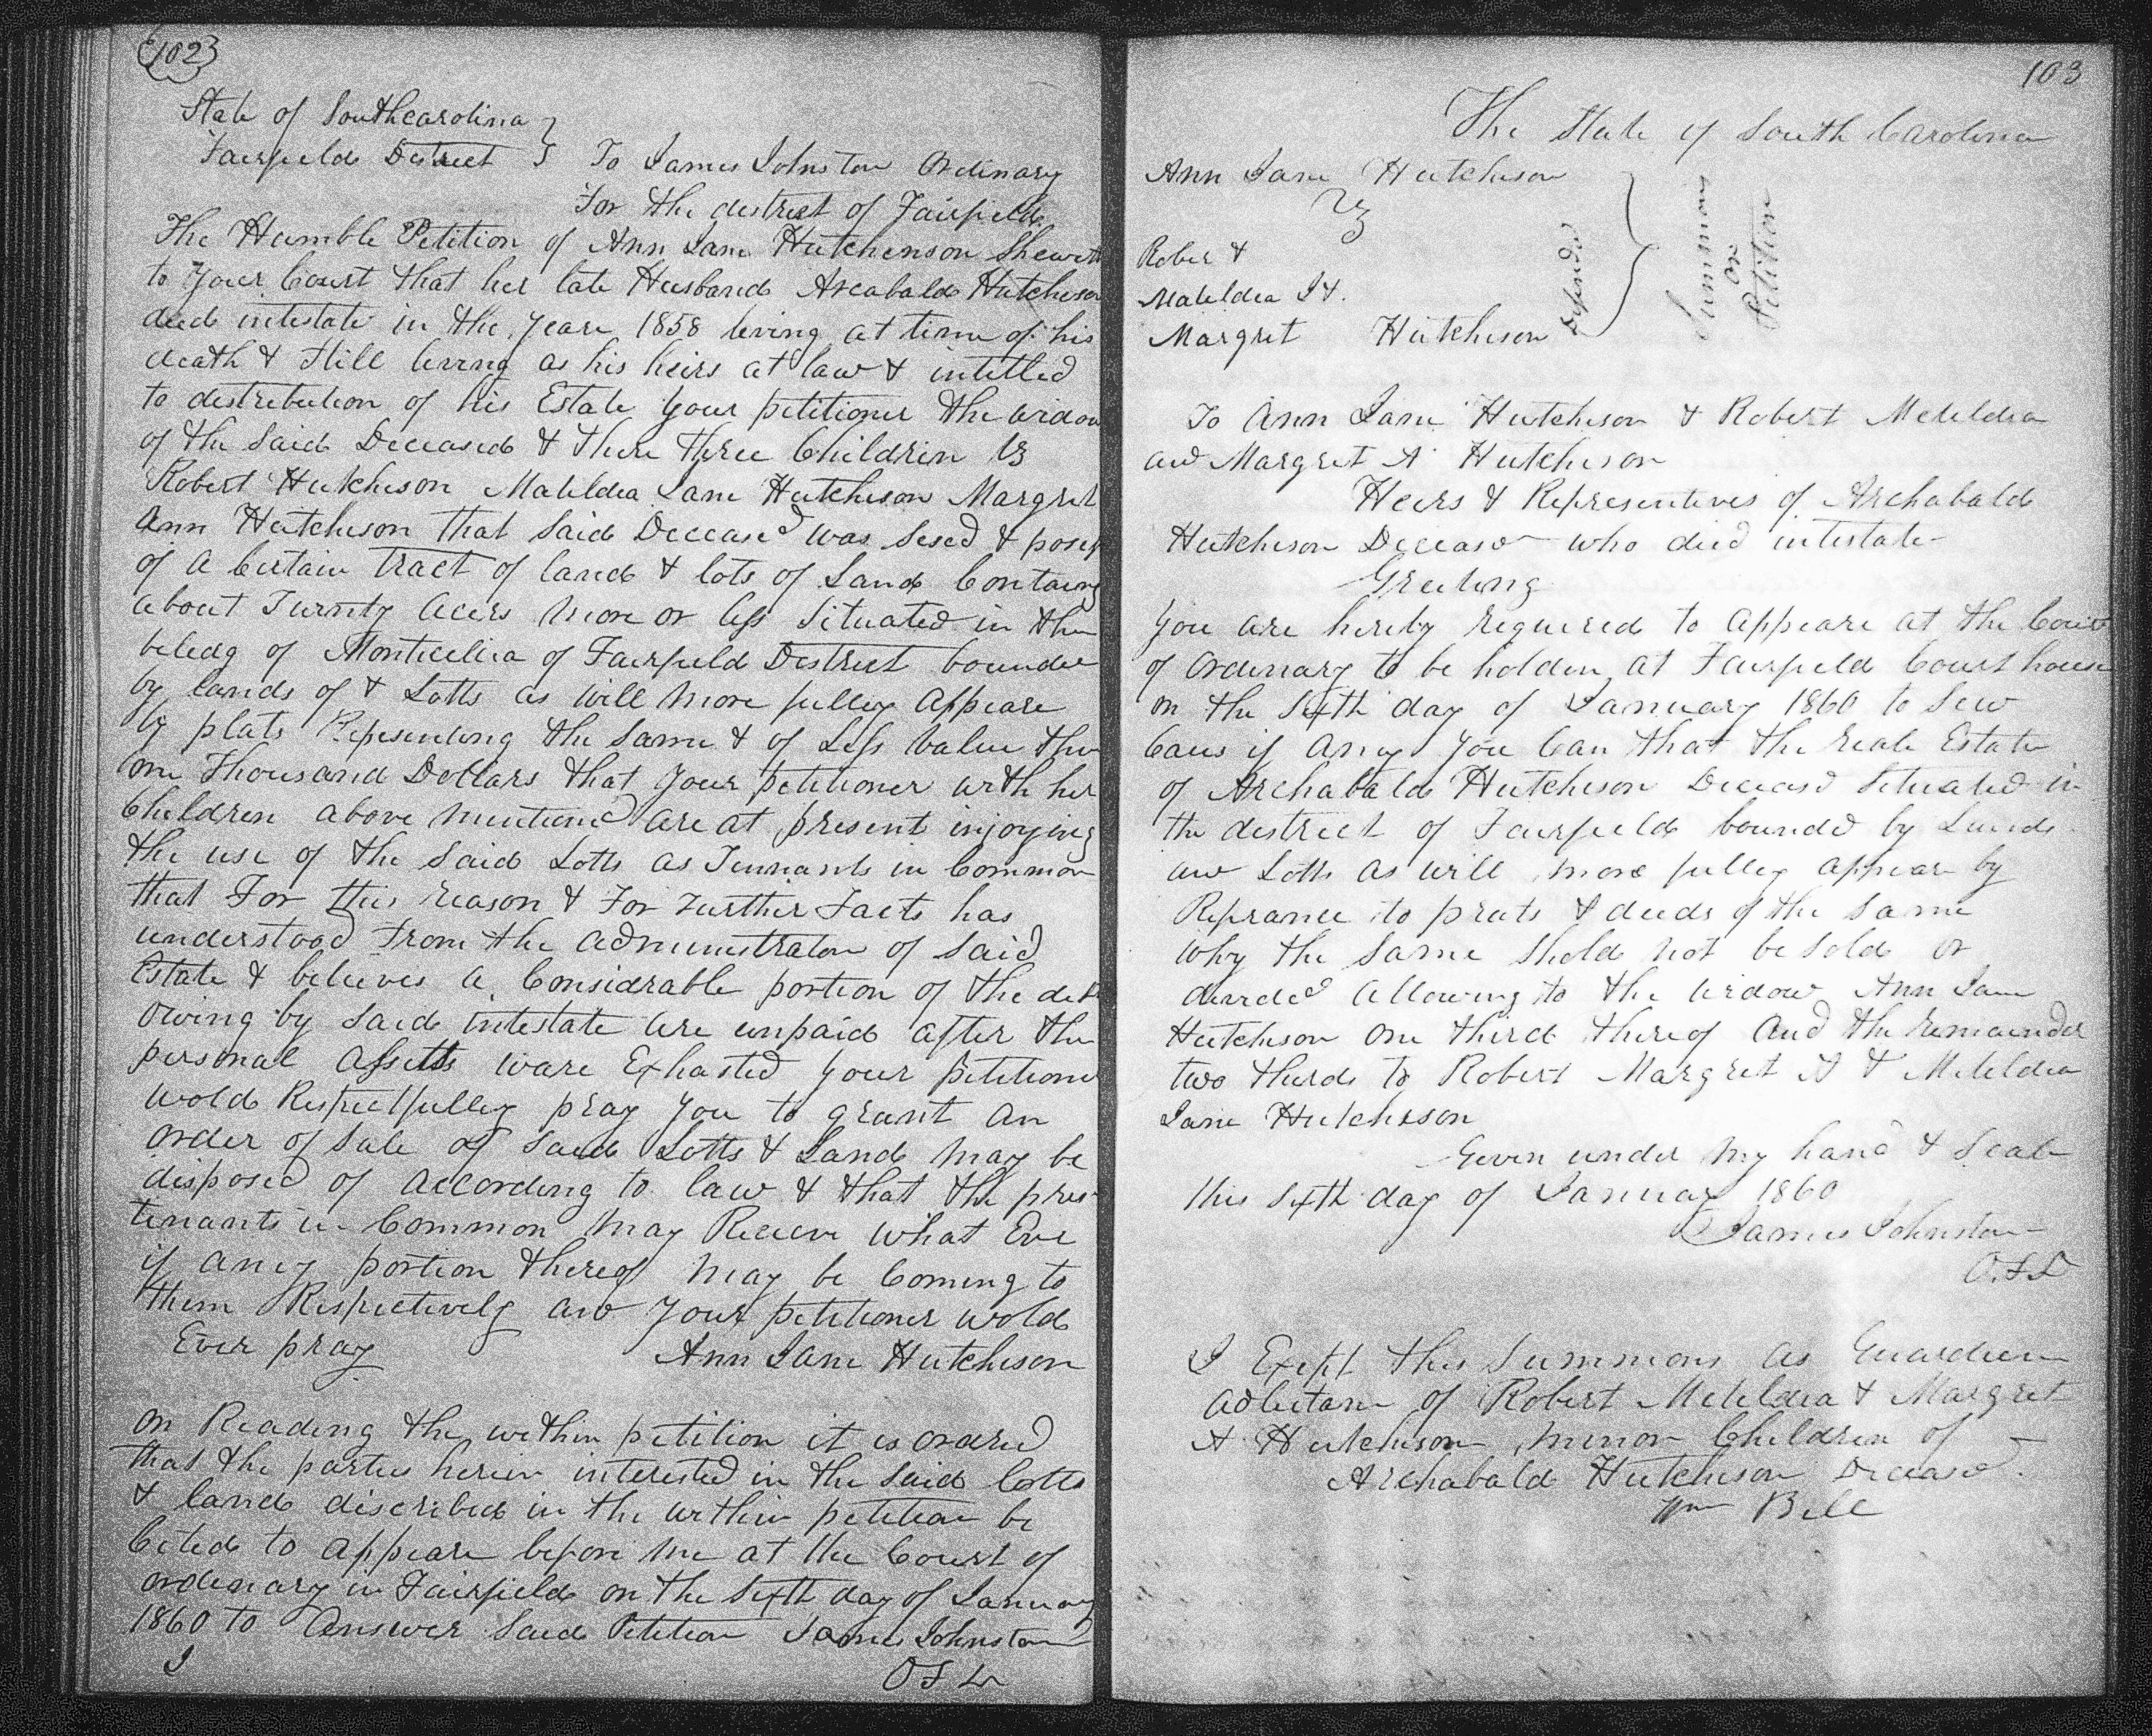 102
State of Southcarolina }
Fairfield District } To James Johnston Ordinary
For the district of Fairfield
The Humble Petition of Ann Jane Hutchenson Sheweth
to Your Court that her late Husband Arcabald Hutcheson
died intestate in the year 1858 leving at time of his
death & still living as his heirs at law & intitled
to distribution of his Estate your petitioner the widow
of the said Deceased & there three Children Vz
Robert Hutcheson Matildia Jane Hutcheson Margret
Ann Hutcheson that said Deceased was sesed &
of a certain tract of land & lots of Land Containg
about Twenty acers more or less Situated in the
veledg of Monticellia of Fairfield District bounded
by lands of & Lotts as will more fulley Appeare
by plats Repesenting the same & of Less value then
one Thousand Dollars that your petitioner with her
Children above mentiond are at present injoying
the use of the said Lotts as Tennants in Common
that For this reason & For Further Facts has
understood From the administrator of said
Estate & believes a Considrable portion of the debt
owing by said intestate are unpaid after the
personal assetts ware Exhasted your petitioner
wold Respectfulley pray you to grant an
order of sale of said Lotts & Land may be
disposed of according to law & that the
tenants in Common may Receve what Eve
if aney portion thereof may be coming to
them Respectively and your petitioner wold
Ever pray Ann Jane Hutcheson
on Reading the within petition it is ordred
that the parties herein interested in the said Lotts
& land discribed in the within petition be
Cited to appeare before me at the Court of
ordenary in Fairfield on the Sixth day of January
1860 to Answer said Petition James Johnston
J O F D
103
The State of South Carolina
Ann Jane Hutcheson
Vz
Rober &
Matildia J &.
Margret Hutcheson
Defends
Summons
on
Petition
To Ann Jane Hutcheson & Robert Metildia
and Margret A Hutcheson
Heirs & Representives of Archabald
Hutcheson Deceasd who died intestate
Greeting
you are hereby required to appeare at the Court
of ordenary to be holden at Fairfield Court house
on the Sixth day of January 1860 to Sew
Caus if aney you can that the reale Estate
of Archabald Hutcheson Deceasd Situated in
the destrect of Fairfield boundd by Lands
and Lotts as will more fulley appear by
Refrance to prats & deeds of the same
why the same shold not be sold or
devided allowing to the widow Ann Jane
Hutcheson one third thereof and the remainder
two thirds to Robert Margret A & Metildia
Jane Hutcheson
Given under my hand & Seale
this sixth day of January 1860
James Johnston
O.F.D
I Exept this Summons as Guardien
adlitam of Robert Metildia & Margret
A Hutcheson minor Children of
Archabald Hutcheson Deceasd.
Wm Bell